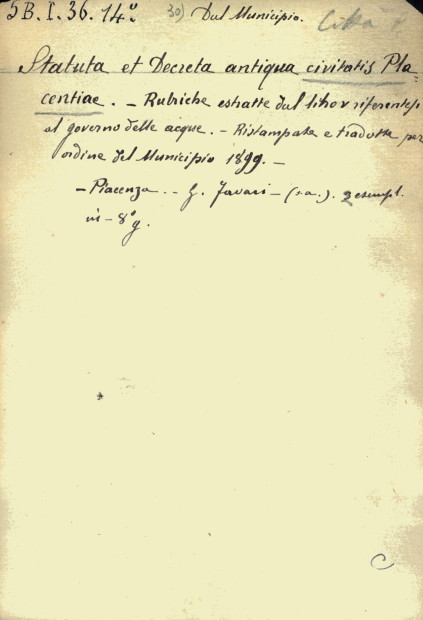 5B.I.36.14º 30) Dal Municipio. Città P.
Statuta et Decreta antiqua civitatis Pla-
centiae. - Rubriche estratte dal libro V riferentesi
al governo delle acque. - Ristampate e tradotte per
ordine del Municipio 1899. -
- Piacenza. - G. Favari - (s.a.). 2 esempl.
in-8º g.
C